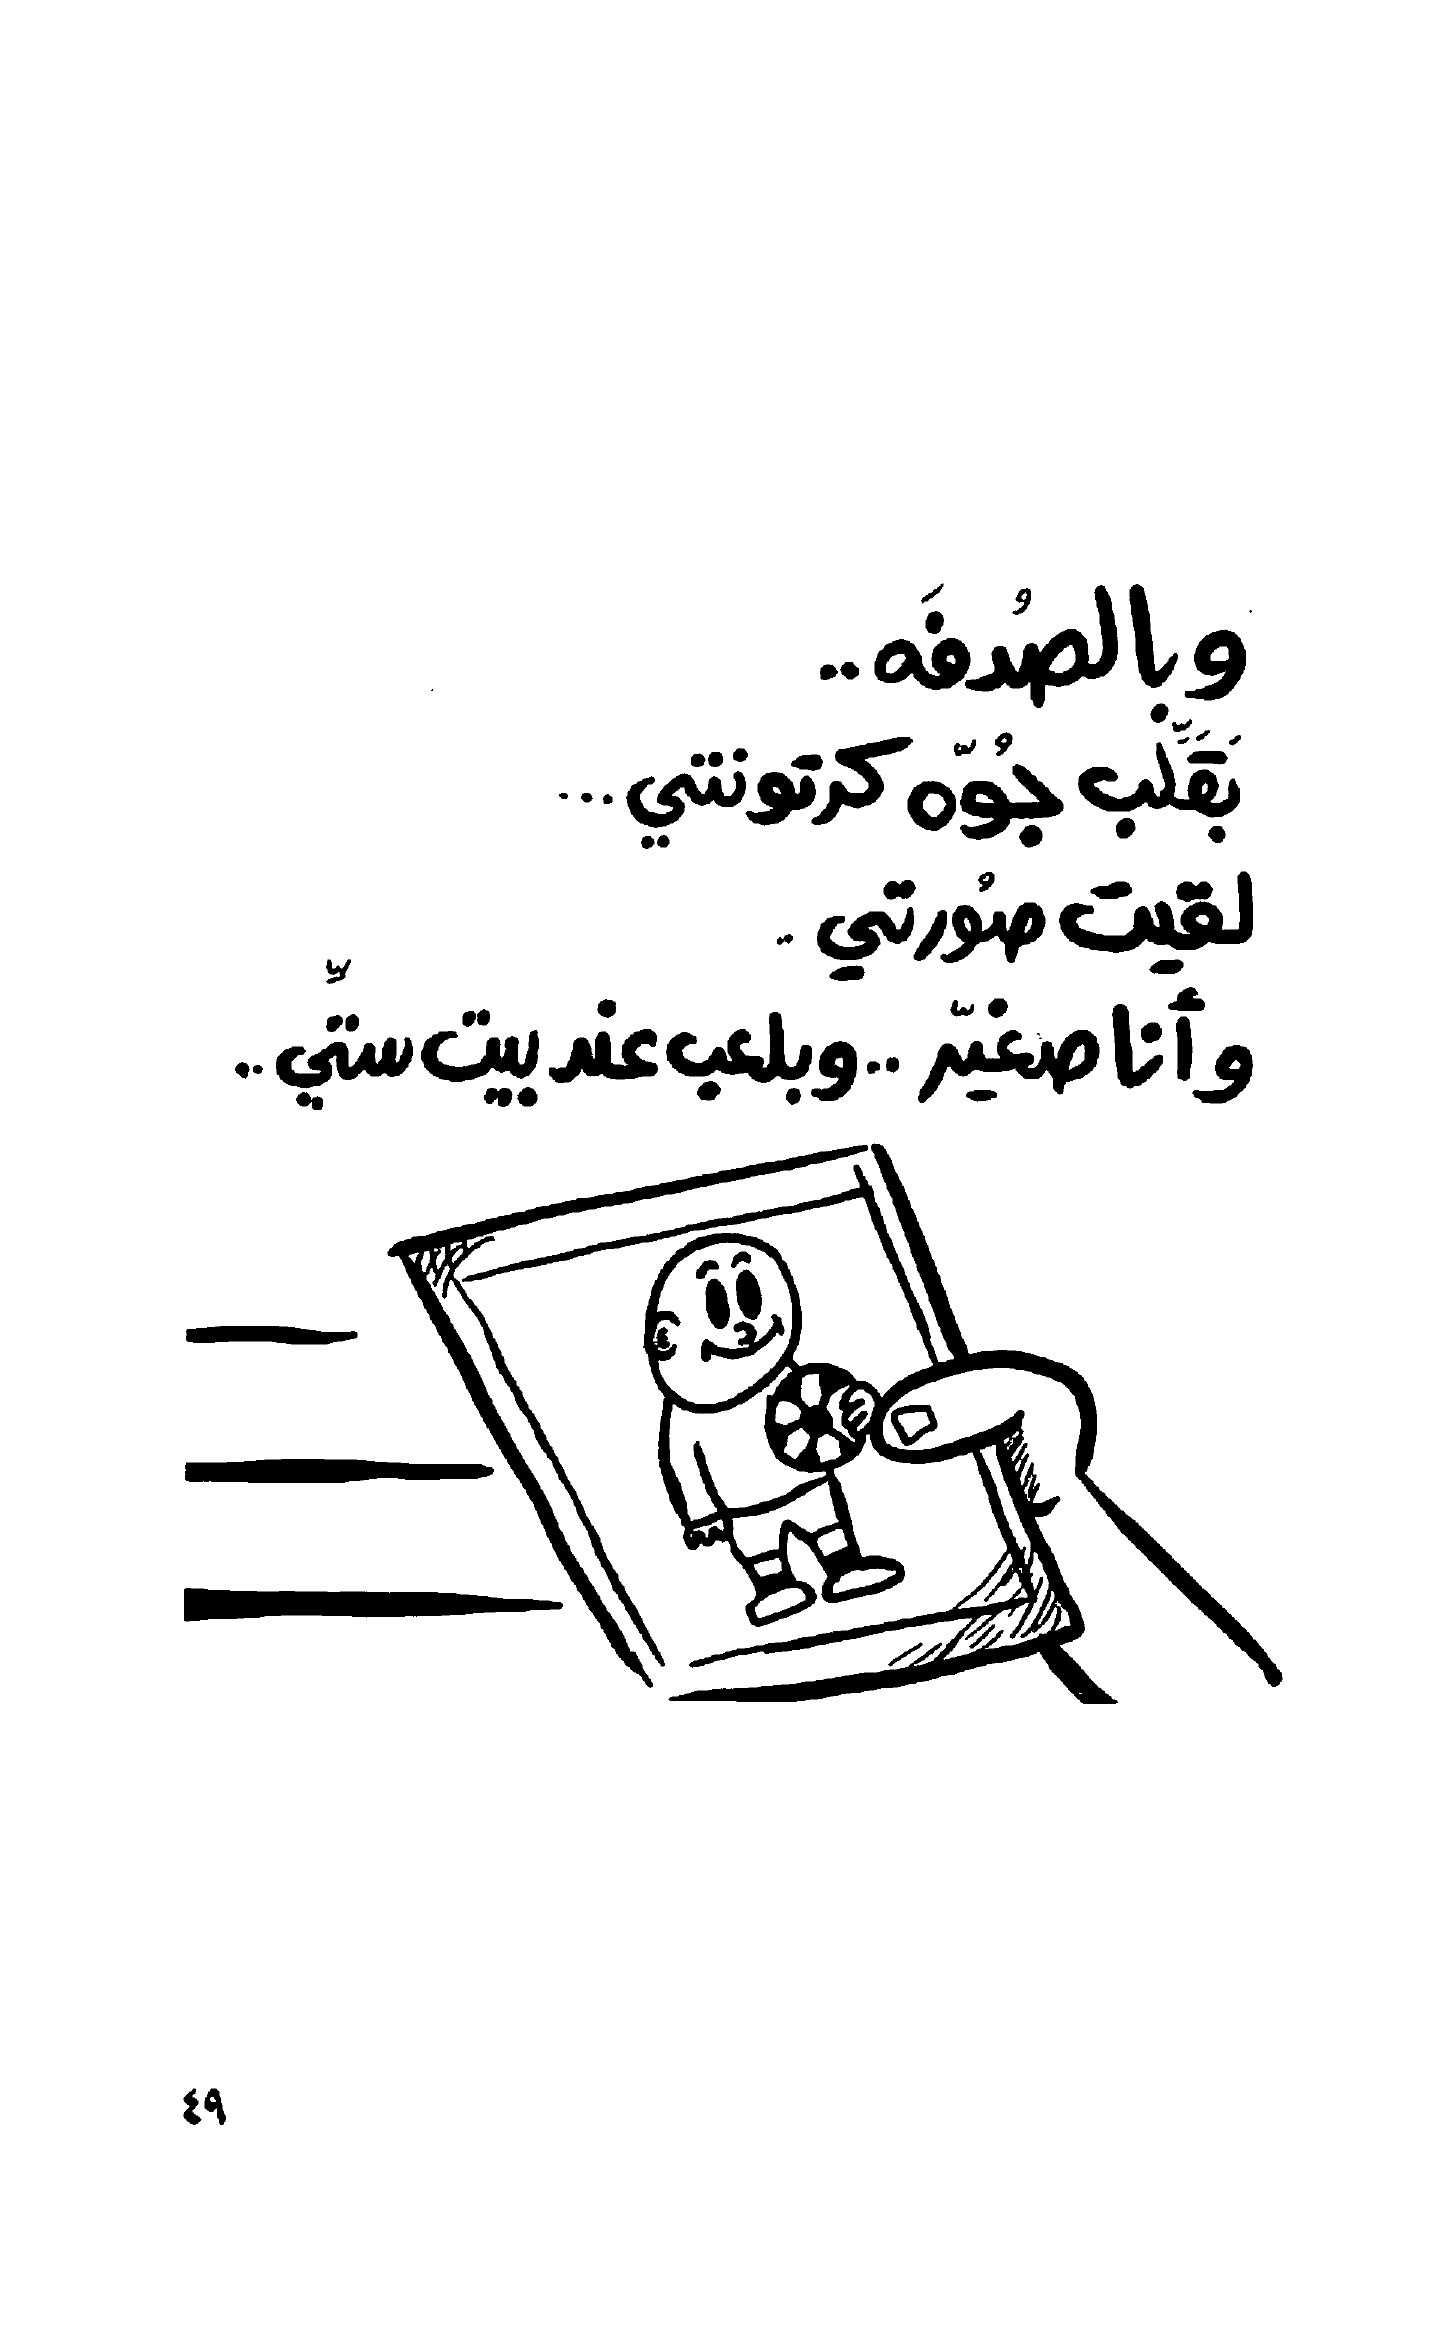 وبالصُدفَه ..
بَقَلِّب جُوّه كرتونتي ...
لقيت صُورتي ..
وأنا صغيّر .. وبلعب عند بيت ستِّي ..
٤٩